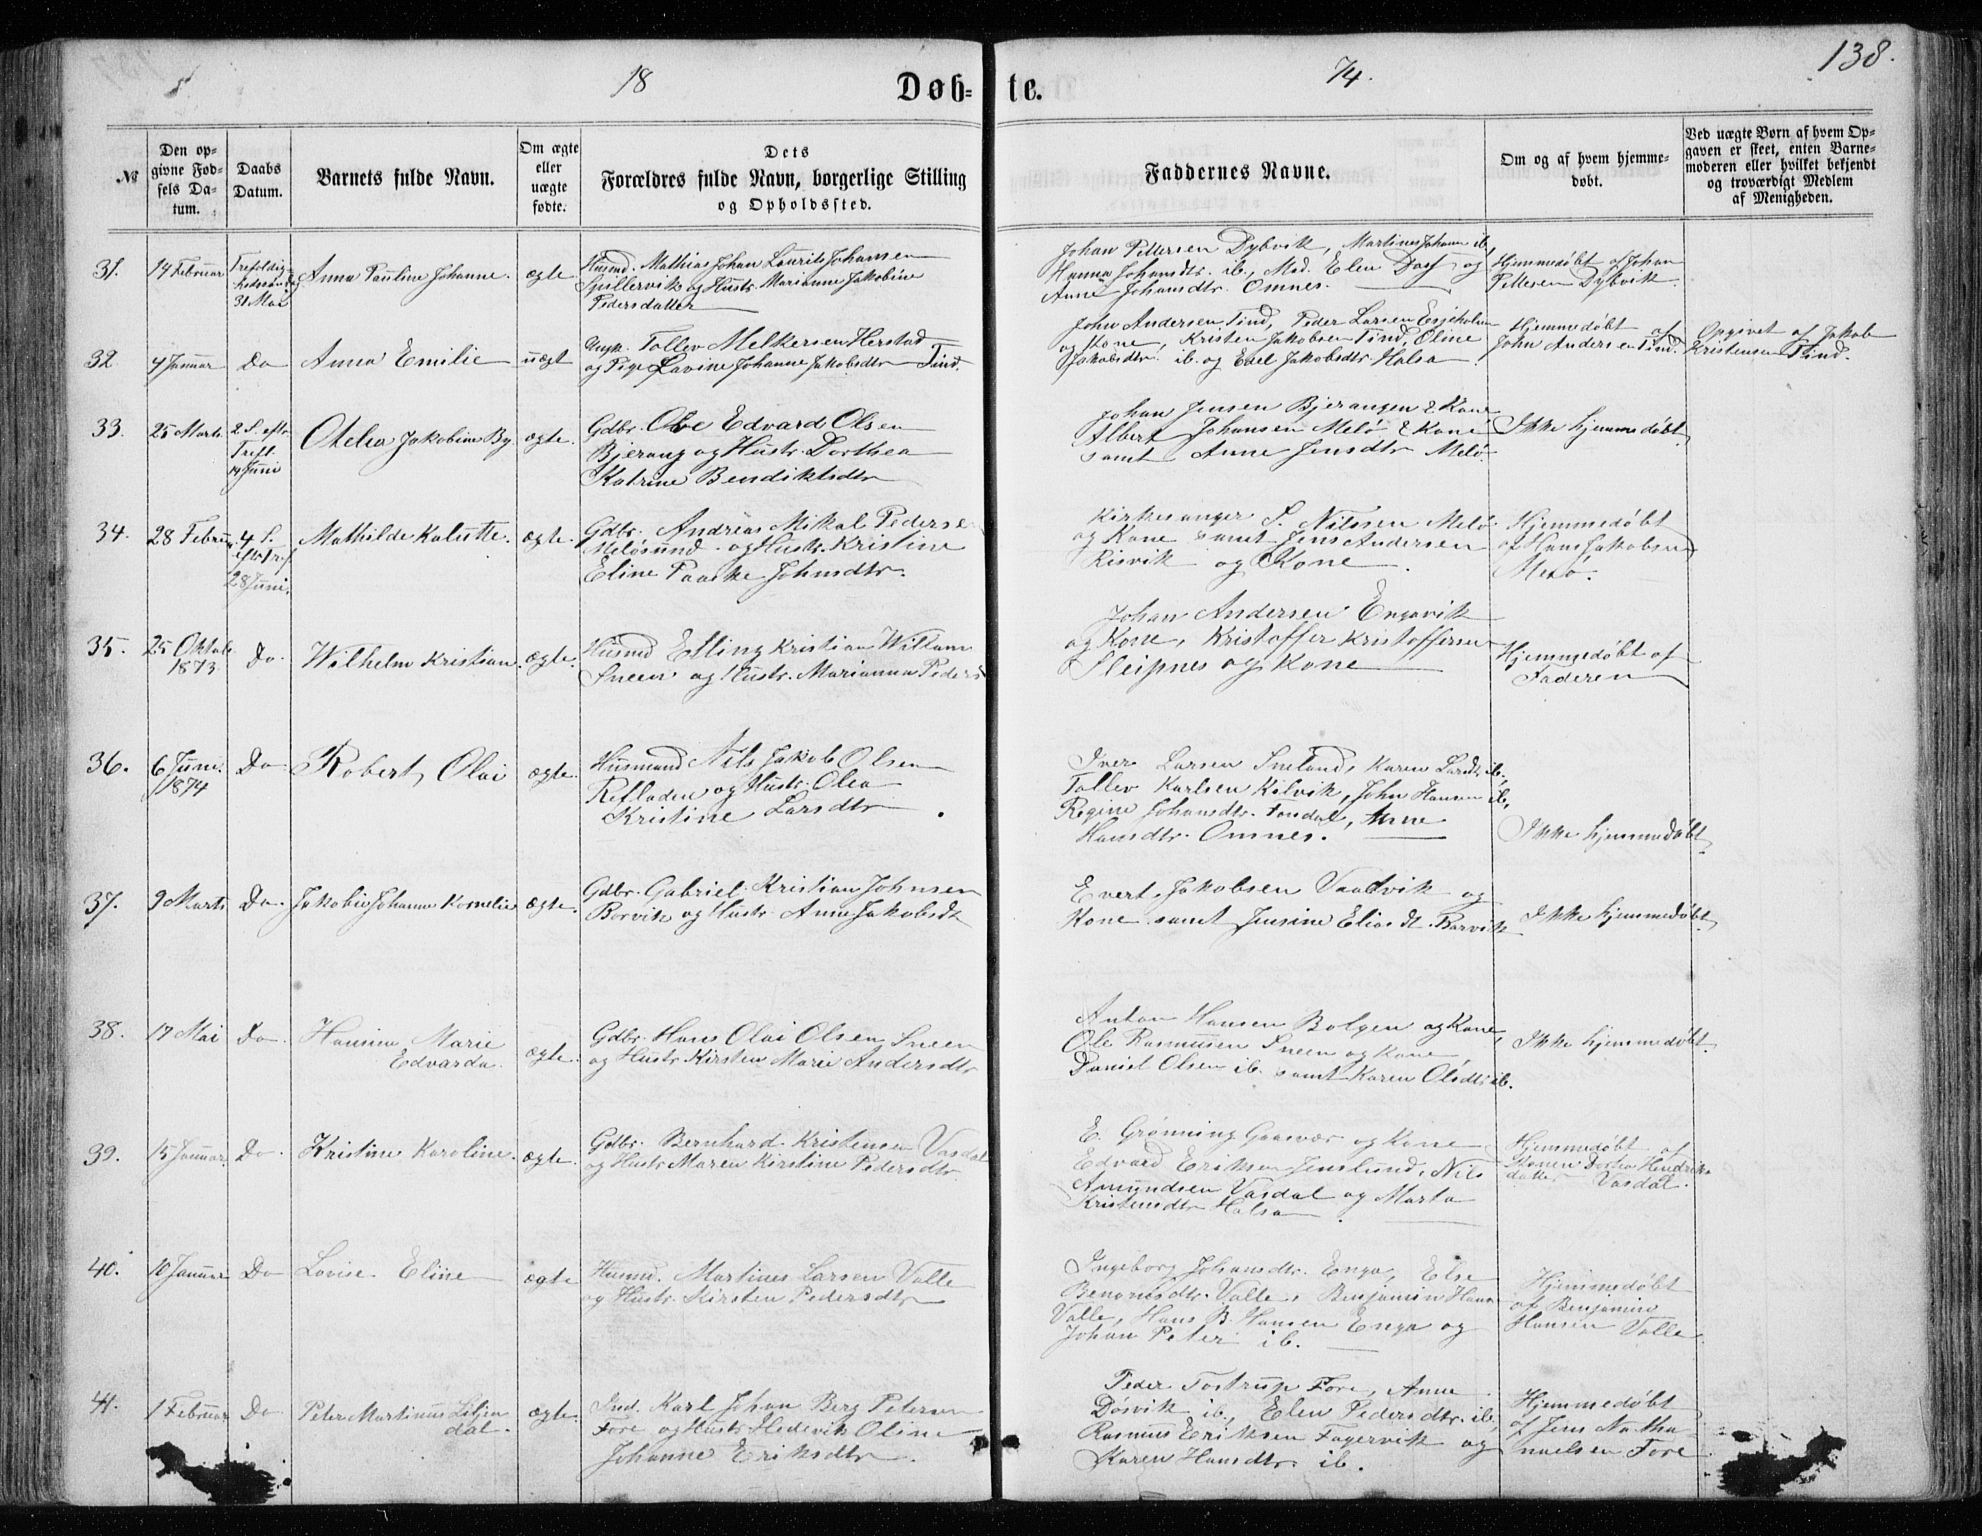 138.
18 Døb- te. 74.
№
Den op-
givne Fød-
sels Da-
tum.
Daabs
Datum.
Barnets fulde Navn.
Om ægte
eller
uægte
fødte.
Dets
Forældres fulde Navn, borgerlige Stilling
og Opholdssted.
Faddernes Navne.
Om og af hvem hjemme-
døbt.
Ved uægte Børn af hvem Op-
gaven er skeet, enten Barne-
moderen eller hvilket bekjendt
og troværdigt Medlem
af Menigheden.
31.
14 Februar
31 Mai
Anna Pauline Johanne.
ægte
Husmd. Mathias Johan Laurits Johansen
Spillervik og Hustr. Marianne Jakobine
Pedersdatter
Johan Pettersen Dybvik, Martinus Johans ib,
Hanna Johansdtr. ib., Mad. Elen Dass og
Anne Johansdtr. Omnes.
Hjemmedøbt af Johan
Pettersen Dybvik.
32
4 Januar
Do
Anna Emilie
uægt
Ungk. Tollev Melkersen Herstad
og Pige Lavine Johanne Jakobsdtr Tind.
John Andersen Tind, Peder Larsen
og Kone, Kristen Jakobsen Tind, Oline
Jakobsdtr. ib. og Enel Jakobsdtr Halsa
Hjemmedøbt af
John Andersen Tind.
Opgivet af Jakob
Kristensen Tind.
33.
25 Marts
2 S. eftr
Tref.
14 Juni
Otelia Jakobine By.
ægte.
Gdbr. Ole Edvard Olsen
Bjerang og Hustr. Dorthea
Katrine Bendiktsdtr
Johan Jensen Bjerangen & Kone
Albert Johansen Melø & Kone
samt Anne Jensdtr Melø.
Ikke hjemmedøbt
34.
28 Februar
4 S.
28 Juni.
Mathilde Kalutte.
ægte.
Gdbr. Andreas Mikal Peders
Meløsund og Hustr. Kristine
Eline Paaske Johnsdtr.
Kirkesanger S. Nilssen Melø
og Kone samt Jens Andersen
Risvik og Kone.
Hjemmedøbt
af Hans Jakobsen
Melø.
35.
25 Oktob.
1873.
Do.
Wilhelm Kristian.
ægte.
Husmd Elling Kristian William
Sneen og Hustr. Marianna Peders
Johan Andersen Engavik
og Kone, Kristoffer Kristoffersen
Sleipnes og Kone
Hjemmedøbt af
Faderen
36.
6 Juni.
1874
Do
Robert Olai
ægte
Husmand Nils Jakob Olsen
Refladen og Hustr. Olea
Kristine Larsdtr.
Iver Larsen Sneland, Karen Larsdtr ib,
Tollev Karlsen Kilvik, John Hansen ib,
Regine Johansdtr. Fondal, Anne
Hansdtr. Omnes.
Ikke hjemmedøbt.
37.
9 Marts
Do.
Jakobie Johanne Kornelie
ægte.
Gdbr. Gabriel Kristian Johnsen
Borvik og Hustr. Anne Jakobsdt
Evert Jakobsen Vaatvik og
Kone samt Jensine Eliasdt. Borvik
Ikke hjemmedøbt.
38.
17 Mai
Do
Hansine Marie
Edvarda.
ægte.
Gdbr. Hans Olai Olsen Sneen
og Hustr Kirsten Marie Andersdtr
Anton Hansen Bolgen og Kone,
Ole Rasmusen Sneen og Kone,
Daniel Olsen ib. samt Karen Olsdtr ib.
Ikke hjemmedøbt.
39.
15 Januar.
Do.
Kristine Karoline.
ægte.
Gdbr. Bernhard Kristensen Vasdal
og Hustr Maren Kirstine Pedersdtr.
E. Grønning Gaasvær og Kone
Edvard Eriksen Jenslund, Nils
Amundsen Vasdal og Marta
Kristensdtr Halsa.
Hjemmedøbt af
Konen Dortea Hendriks
datter Vasdal.
40.
10 Januar
Do
Lovise Eline
ægte
Husmd. Martines Larsen Valle
og Hustr. Kirsten Pedersdtr
Ingeborg Johansdtr. Enga, Else
Benonisdtr. Valle, Benjamin Hans
Valle, Hans B. Hansen Enga og
Johan Peter ib.
Hjemmedøbt
af Benjamin
Hansen Valle.
41.
1 Februar
Do
Peter Martinus Liljen
dal.
ægte.
Ind. Karl Johan Berg Petersen
Fore og Hustr Hedevik Oline
Johanne Eriksdtr.
Peder Tostrup Fore, Anne
Døsvik ib., Elen Pedersdtr. ib,
Rasmus Eriksen Fagervik og
Karen Hansdtr. ib.
Hjemmedøbt
af Jens Natha
naelsen Fore